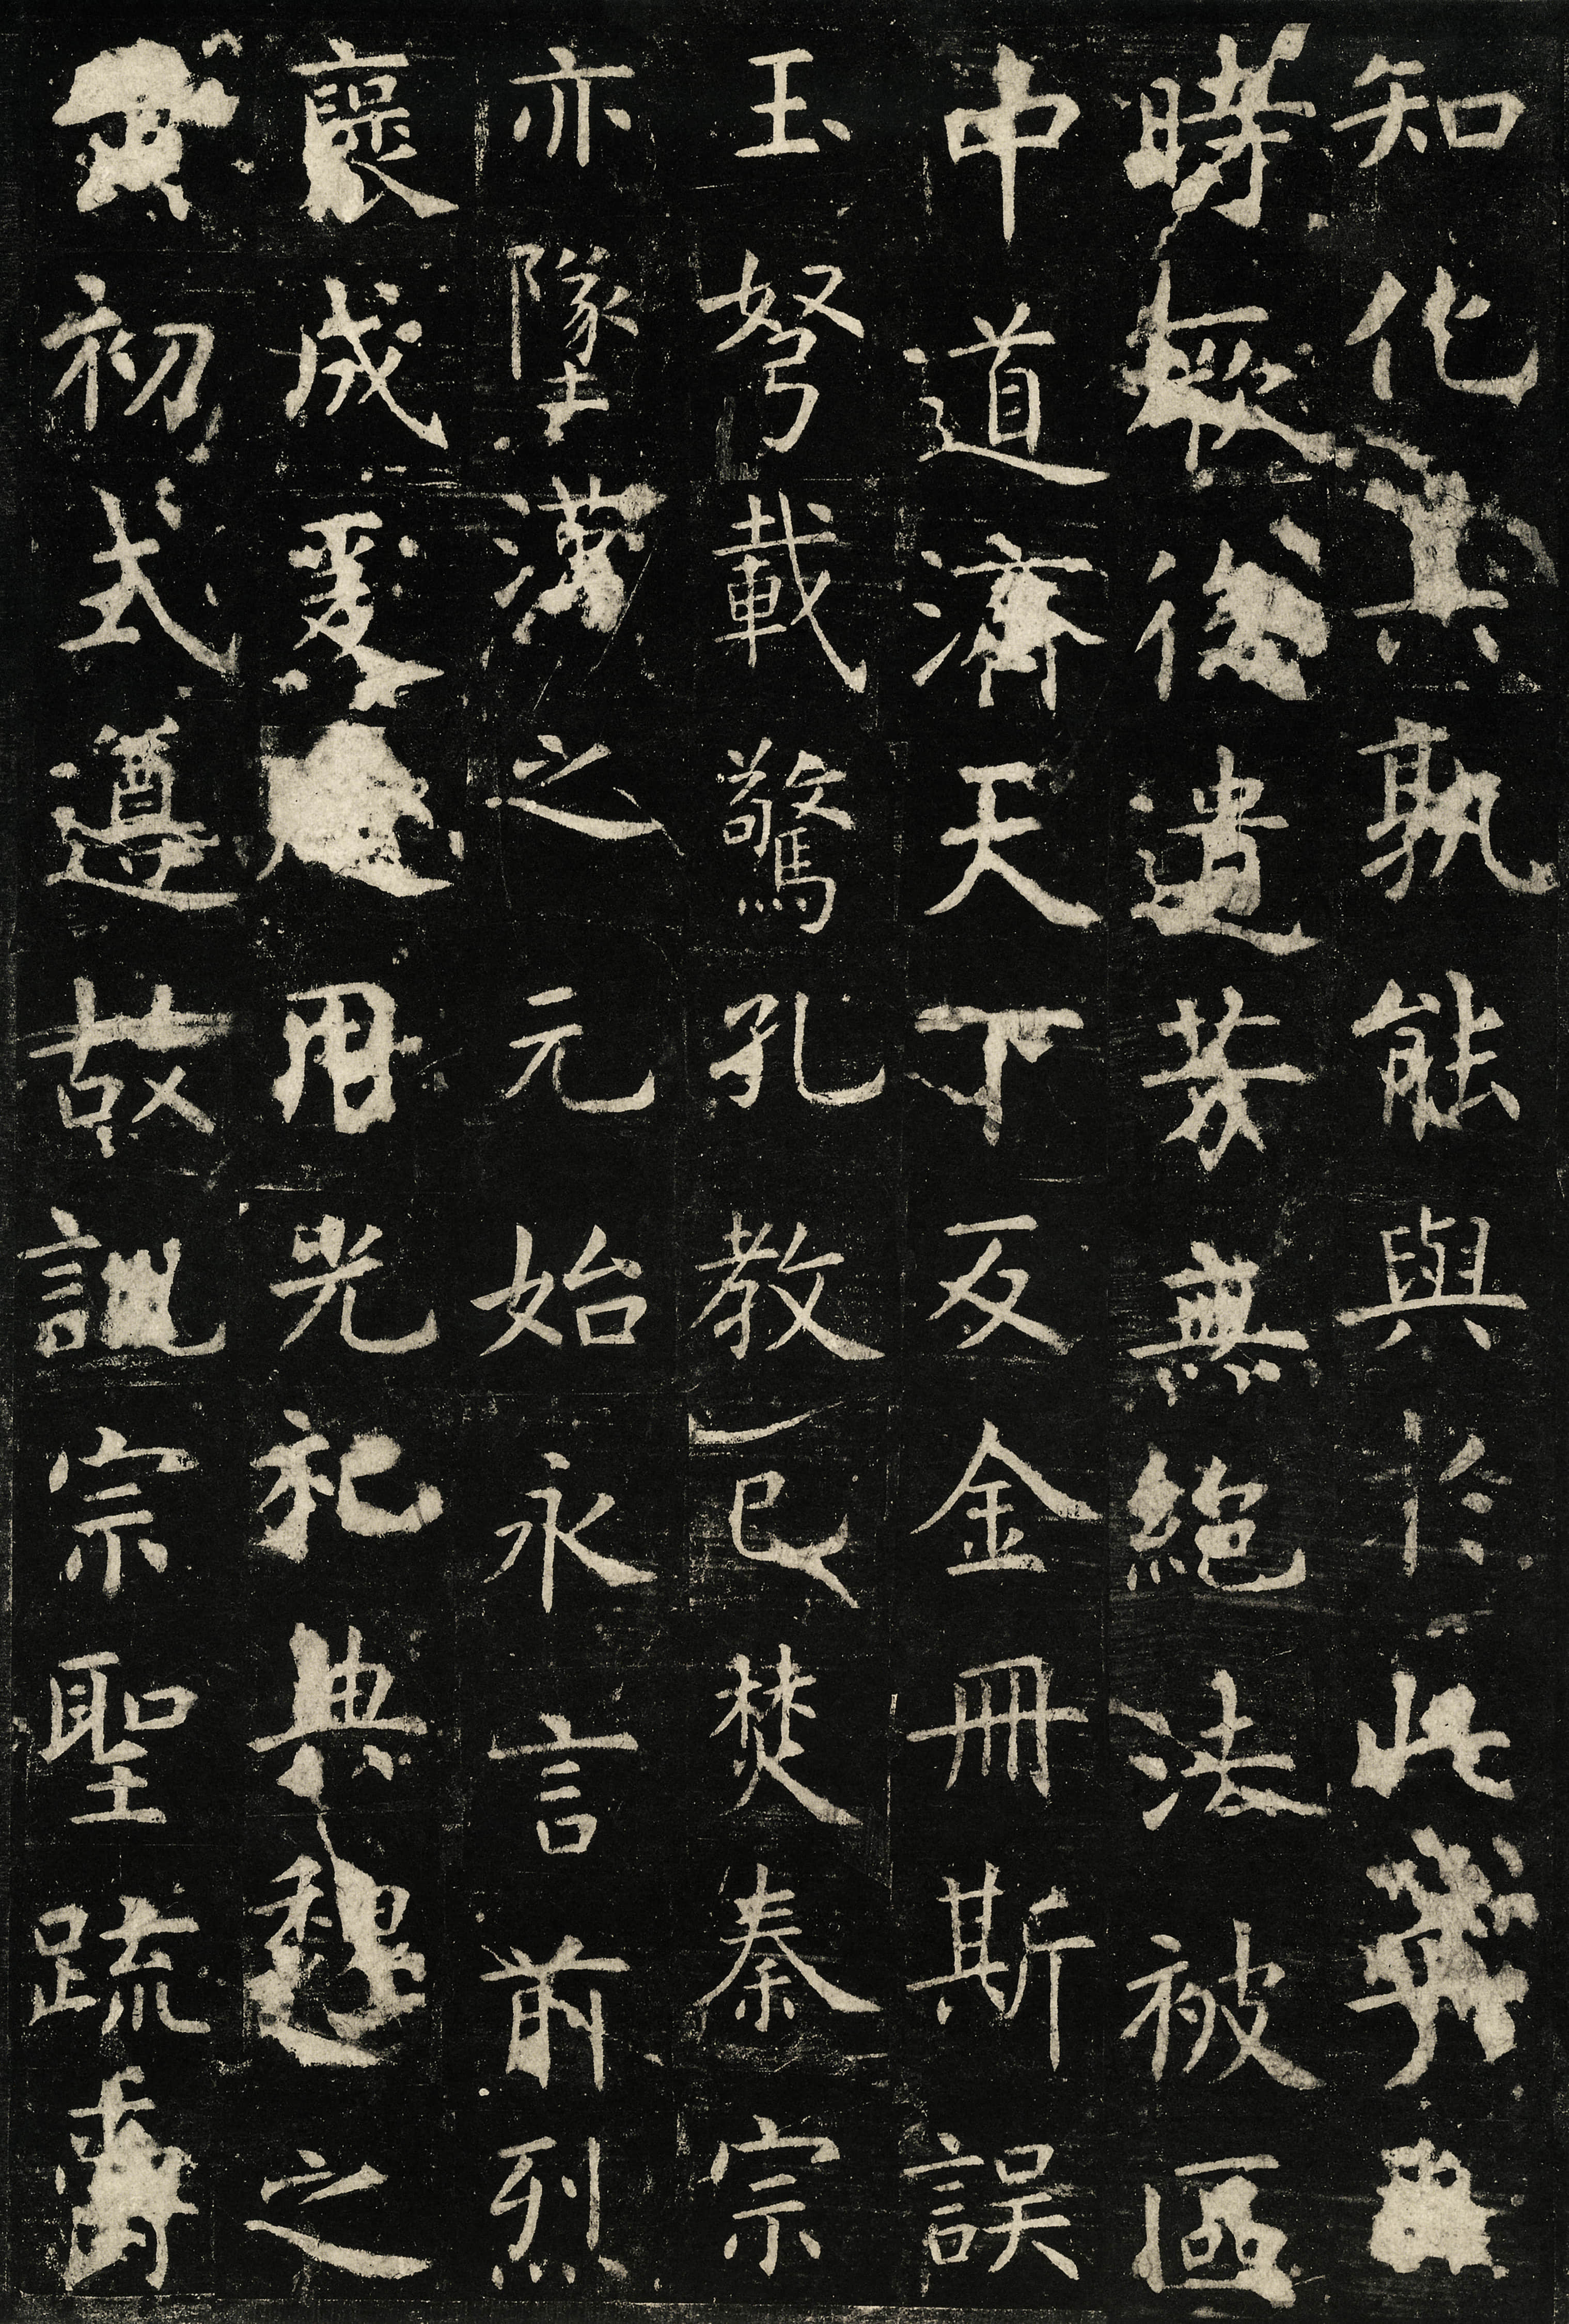 知化其孰能與於此乎
時厥後遺芳無絕法被區
中道濟天下及金冊斯誤
玉弩載驚孔教已焚秦宗
亦墜漢之元始永言前烈
襃成爰用光祀典魏之
黃初式遵故訓宗聖疏爵